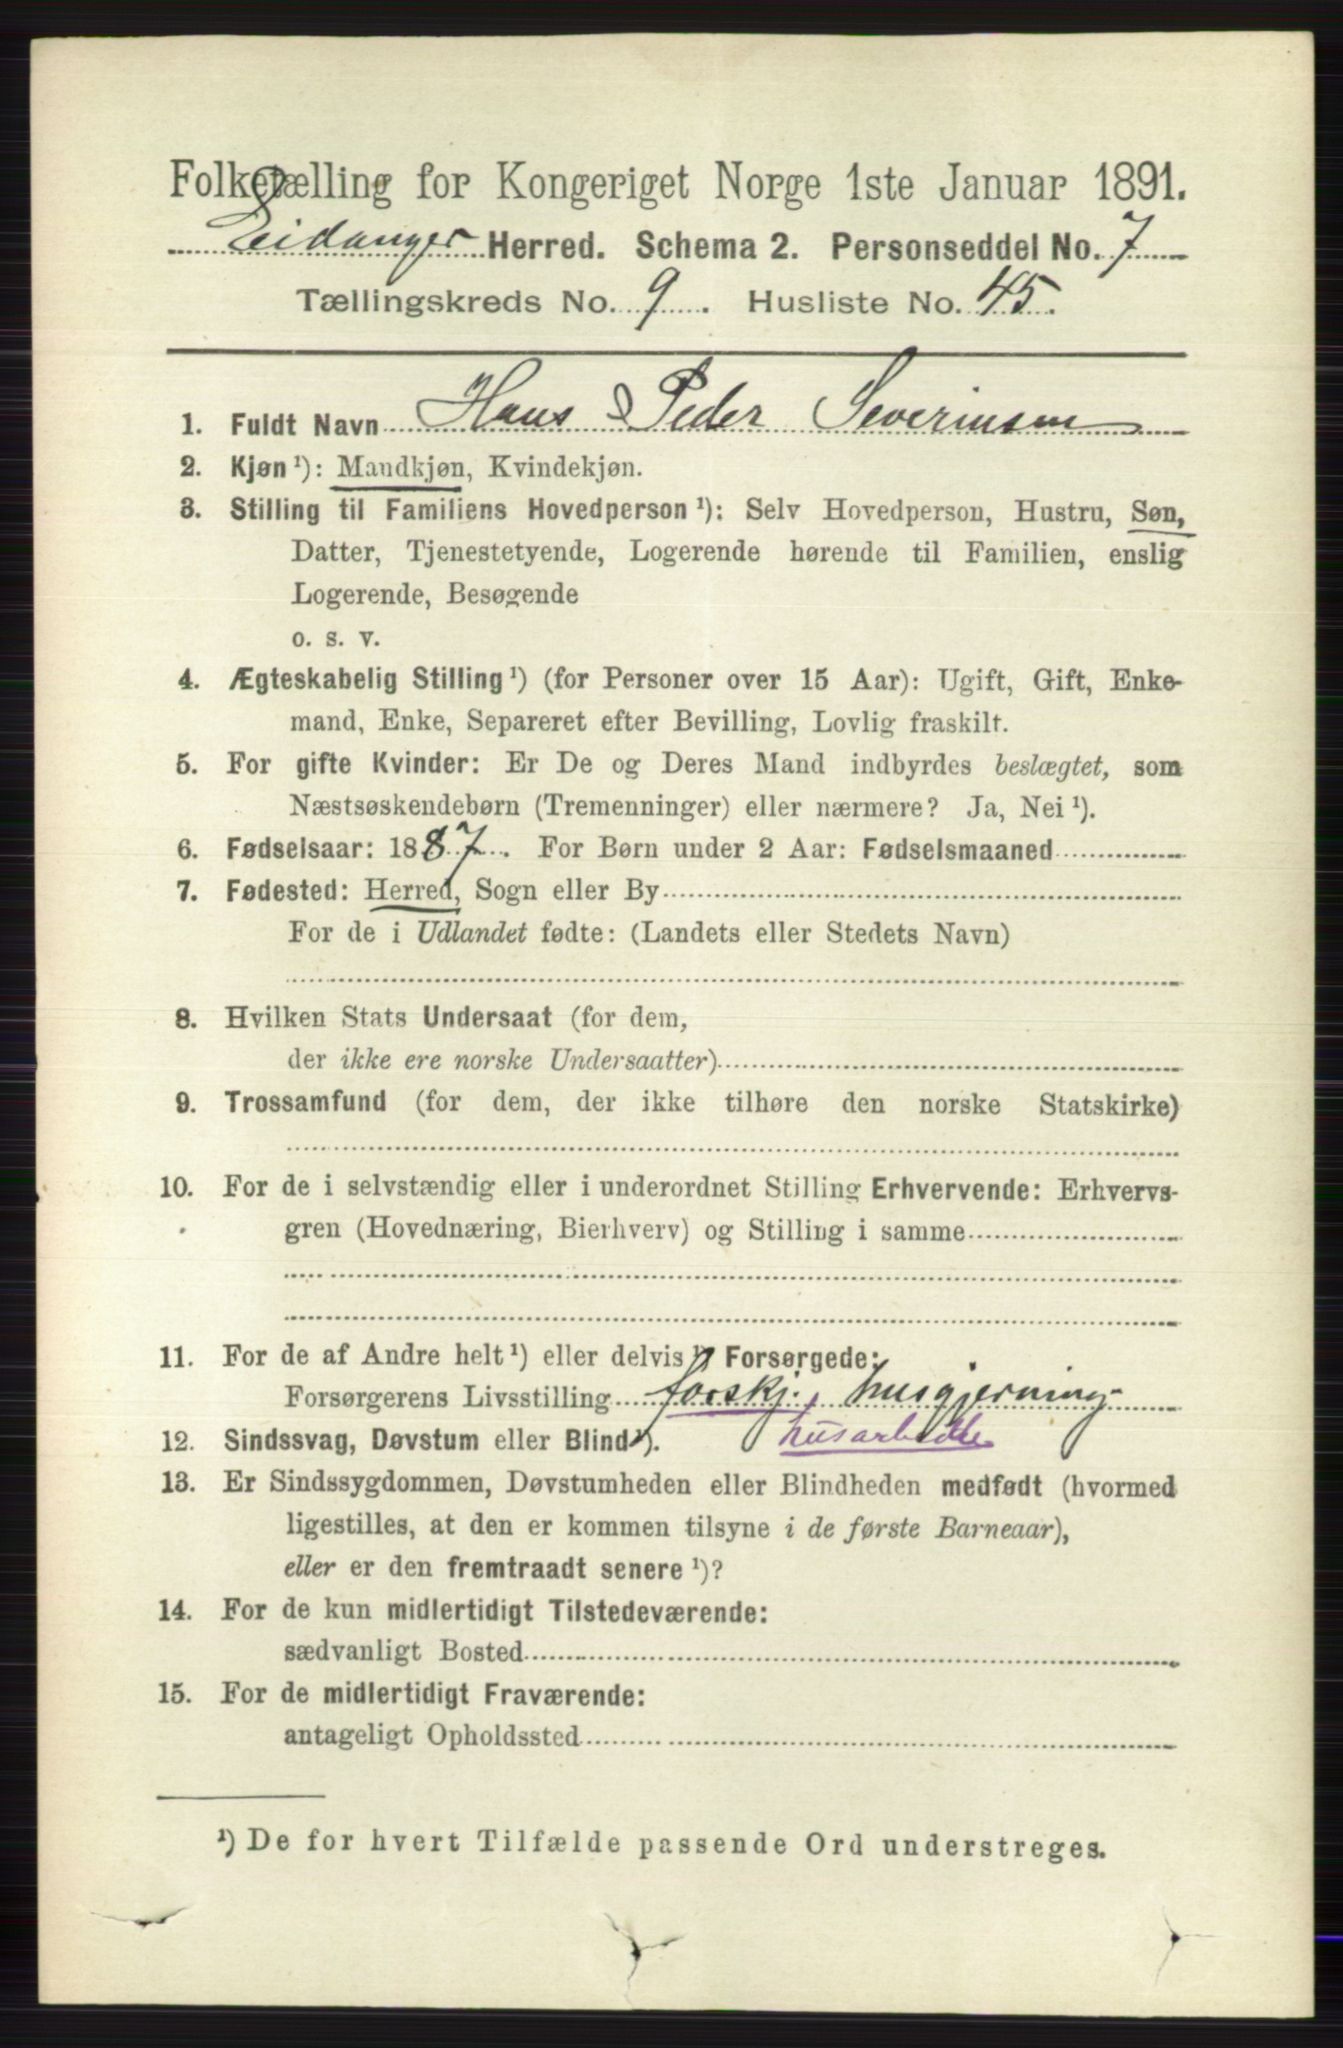 Folketælling for Kongeriget Norge 1ste Januar 1891.
Eidanger Herred. Schema 2. Personseddel No. 7
Tællingskreds No. 9. Husliste No. 45.
1. Fuldt Navn Hans Peder Severinsen
2. Kjøn ¹): Mandkjøn, Kvindekjøn.
3. Stilling til Familiens Hovedperson ¹): Selv Hovedperson, Hustru, Søn,
Datter, Tjenestetyende, Logerende hørende til Familien, enslig
Logerende, Besøgende
o. s. v.
4. Ægteskabelig Stilling ¹) (for Personer over 15 Aar): Ugift, Gift, Enke-
mand, Enke, Separeret efter Bevilling, Lovlig fraskilt.
5. For gifte Kvinder: Er De og Deres Mand indbyrdes beslægtet, som
Næstsøskendebørn (Tremenninger) eller nærmere? Ja, Nei ¹).
6. Fødselsaar: 1887. For Børn under 2 Aar: Fødselsmaaned
7. Fødested: Herred, Sogn eller By
For de i Udlandet fødte: (Landets eller Stedets Navn)
8. Hvilken Stats Undersaat (for dem,
der ikke ere norske Undersaatter)
9. Trossamfund (for dem, der ikke tilhøre den norske Statskirke)
10. For de i selvstændig eller i underordnet Stilling Erhvervende: Erhvervs-
gren (Hovednæring, Bierhverv) og Stilling i samme
11. For de af Andre helt ¹) eller delvis ¹) Forsørgede:
Forsørgerens Livsstilling forskj. husgjerning
12. Sindssvag, Døvstum eller Blind ¹). husarbeide
13. Er Sindssygdommen, Døvstumheden eller Blindheden medfødt (hvormed
ligestilles, at den er kommen tilsyne i de første Barneaar),
eller er den fremtraadt senere ¹)?
14. For de kun midlertidigt Tilstedeværende:
sædvanligt Bosted
15. For de midlertidigt Fraværende:
antageligt Opholdssted
¹) De for hvert Tilfælde passende Ord understreges.